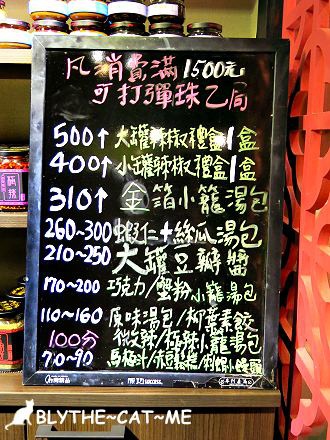 凡消費滿1500元
可打彈珠乙局
500↑ 大罐辣椒禮盒1盒
400↑ 小罐辣椒禮盒1盒
310↑ 金箔小籠湯包
260~300 蝦仁+絲瓜湯包
210~250 大罐豆瓣醬
170~200 巧克力/蟹粉小籠湯包
110~160 原味湯包/柳葉素餃
100分 微辣/極辣小籠湯包
70~90
SUCCESS
BLYTHE~CAT~ME